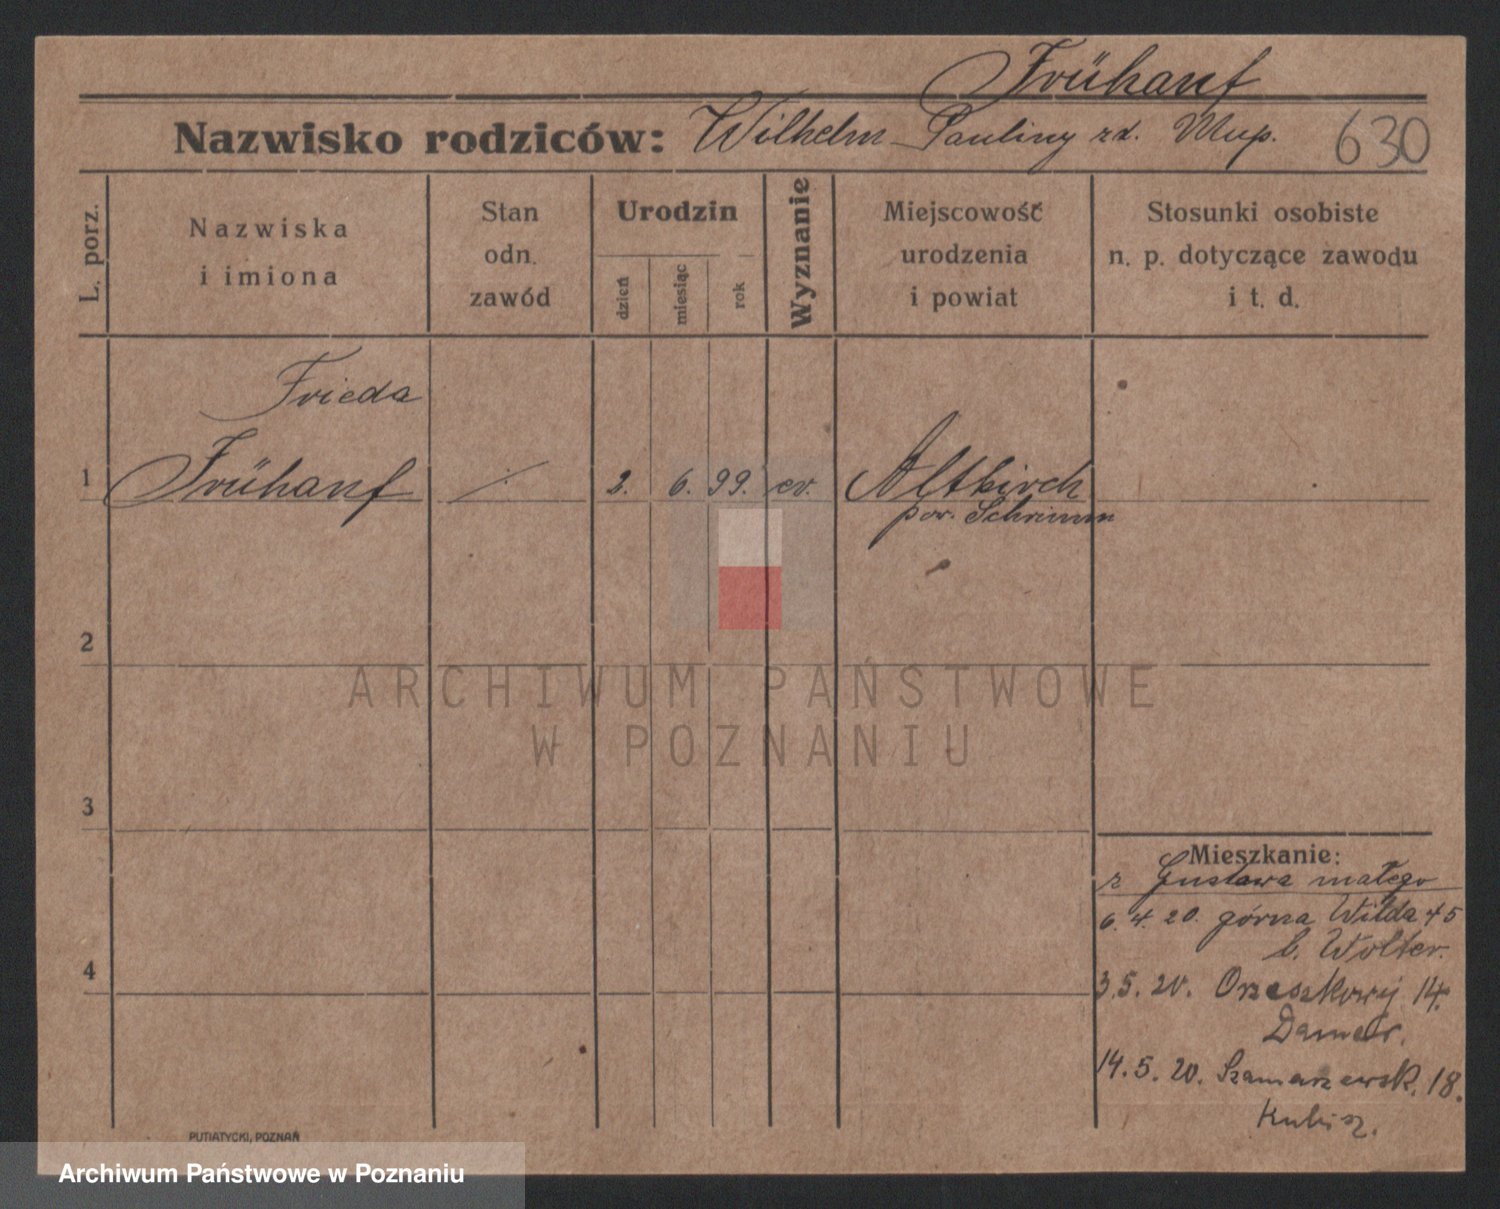 Frühauf
Nazwisko rodziców: Wilhelm Pauliny zd.
630
L. porz.
Nazwiska
i imiona
Stan
odn.
zawód
Urodzin
dzień
miesiąc
rok
Wyznanie
Miejscowość
urodzenia
i powiat
Stosunki osobiste
n. p. dotyczące zawodu
i t. d.
Frieda
1 Frühauf 2. 6. 99. ev. Altkirch
pow. Schrimm
2
3
4
Mieszkanie:
z Gustawa małego
6.4.20. górna Wilda 45
b. Wolter.
3.5.20. Orzeszkowej 14.
14.5.20. Szamarzewsk. 18.
Kubisz.
PUTIATYCKI, POZNAŃ
ARCHIWUM PAŃSTWOWE
W POZNANIU
Archiwum Państwowe w Poznaniu